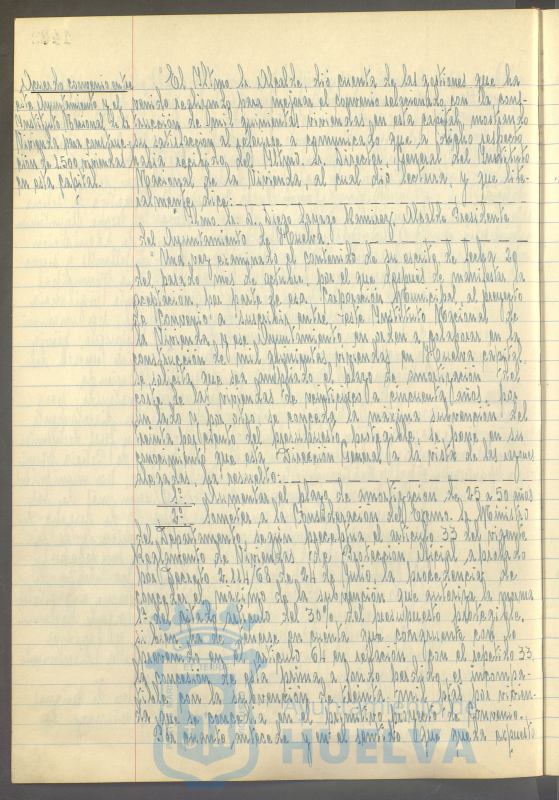 Acuerdo convenio entre
este Ayuntamiento y el
Instituto Nacional de la
Vivienda para construc-
ción de 1500 viviendas
en esta capital.
El Iltmo Sr. Alcalde, dió cuenta de las gestiones que ha
venido realizando para mejorar el convenio relacionado con la cons-
trucción de mil quinientas viviendas en esta capital, mostrando
su satisfacción al referirse a comunicado que a dicho respecto
había recibido del Iltmo. Sr. Director General del Instituto
Nacional de la Vivienda, al cual dió lectura, y que lite-
ralmente dice:
"Iltmo. Sr. D. Diego Sayago Ramírez, Alcalde Presidente
del Ayuntamiento de Huelva.
"Una vez examinado el contenido de su escrito de fecha 29
del pasado mes de octubre, por el que después de manifestar la
aceptación, por parte de esa Corporación Municipal, al proyecto
de Convenio a suscribir entre este Instituto Nacional de
la Vivienda y ese Ayuntamiento en orden a colaborar en la
construcción de mil quinientas viviendas en Huelva capital,
se solicita que sea ampliado el plazo de amortización del
coste de las viviendas de veinticinco a cincuenta años, por
un lado y por otro se conceda la máxima subvención del
treinta por ciento del presupuesto protegible, se pone en su
conocimiento que esta Dirección General a la vista de las razones
alegadas, ha resuelto:
1º Aumentar el plazo de amortización de 25 a 50 años
2º Someter a la Consideración del Excmo. Sr. Ministro
del Departamento, según preceptúa el artículo 33 del vigente
Reglamento de Viviendas de Protección Oficial aprobado
por Decreto 2.114/68 de 24 de Julio, la procedencia de
conceder el máximo de la subvención que autoriza la norma
1ª del citado artículo del 30% del presupuesto protegible,
si bien ha de tenerse en cuenta que congruente con lo
prevenido en el artículo 64 en relación con el repetido 33,
la concesión de esta prima a fondo perdido, es incompa-
tible con la subvención de treinta mil ptas por vivien-
da que se concedía en el primitivo proyecto de Convenio.
Por cuanto antecede y en el sentido que queda expuesto
Ayuntamiento de
HUELVA